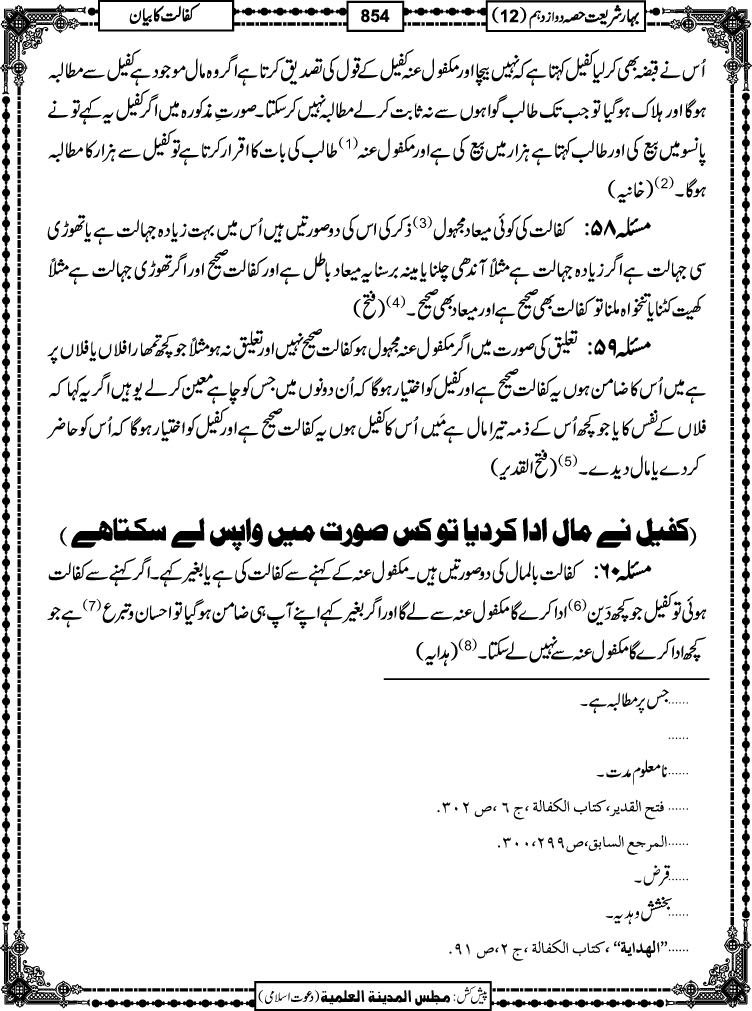 بہار شریعت حصہ دوازدہم (12)
854
کفالت کا بیان
اُس نے قبضہ بھی کرلیا کفیل کہتا ہے کہ نہیں بیچا اور مکفول عنہ کفیل کے قول کی تصدیق کرتا ہے اگر وہ مال موجود ہے کفیل سے مطالبہ
ہوگا اور ہلاک ہوگیا تو جب تک طالب گواہوں سے نہ ثابت کرلے مطالبہ نہیں کرسکتا۔ صورتِ مذکورہ میں اگر کفیل یہ کہے تو نے
پانسو میں بیع کی اور طالب کہتا ہے ہزار میں بیع کی ہے اور مکفول عنہ(1) طالب کی بات کا اقرار کرتا ہے تو کفیل سے ہزار کا مطالبہ
ہوگا۔(2) (خانیہ)
مسئلہ ۵۸: کفالت کی کوئی میعاد مجہول(3) ذکر کی اس کی دو صورتیں ہیں اُس میں بہت زیادہ جہالت ہے یا تھوڑی
سی جہالت ہے اگر زیادہ جہالت ہے مثلاً آندھی چلنا یا مینہ برسنا یہ میعاد باطل ہے اور کفالت صحیح اور اگر تھوڑی جہالت ہے مثلاً
کھیت کٹنا یا تنخواہ ملنا تو کفالت بھی صحیح ہے اور میعاد بھی صحیح۔(4) (فتح)
مسئلہ ۵۹: تعلیق کی صورت میں اگر مکفول عنہ مجہول ہو کفالت صحیح نہیں اور تعلیق نہ ہو مثلاً جو کچھ تمھارا فلاں یا فلاں پر
ہے میں اُس کا ضامن ہوں یہ کفالت صحیح ہے اور کفیل کو اختیار ہوگا کہ اُن دونوں میں جس کو چاہے معین کرلے یوہیں اگر یہ کہا کہ
فلاں کے نفس کا یا جو کچھ اُس کے ذمہ تیرا مال ہے مَیں اُس کا کفیل ہوں یہ کفالت صحیح ہے اور کفیل کو اختیار ہوگا کہ اُس کو حاضر
کردے یا مال دیدے۔(5) (فتح القدیر)
(کفیل نے مال ادا کردیا تو کس صورت میں واپس لے سکتاھے)
مسئلہ ۶۰: کفالت بالمال کی دو صورتیں ہیں۔ مکفول عنہ کے کہنے سے کفالت کی ہے یا بغیر کہے۔ اگر کہنے سے کفالت
ہوئی تو کفیل جو کچھ دَین(6) ادا کرے گا مکفول عنہ سے لے گا اور اگر بغیر کہے اپنے آپ ہی ضامن ہوگیا تو احسان و تبرع(7) ہے جو
کچھ ادا کرے گا مکفول عنہ سے نہیں لے سکتا۔(8) (ہدایہ)
......جس پر مطالبہ ہے۔
......
......نامعلوم مدت۔
...... فتح القدير، كتاب الكفالة ،ج ٦ ،ص ٣٠٢.
......المرجع السابق،ص٢٩٩،٣٠٠.
......قرض۔
......بخشش وہدیہ۔
......”الهداية“ ،كتاب الكفالة ،ج ٢،ص ٩١.
پیش کش: مجلس المدينة العلمية (دعوت اسلامی)